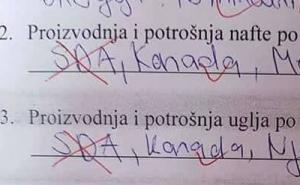 2. Proizvodnja i potrošnja nafte po
SDA, Kanada,
3. Proizvodnja i potrošnja uglja po
SDA, Kanada, Nj